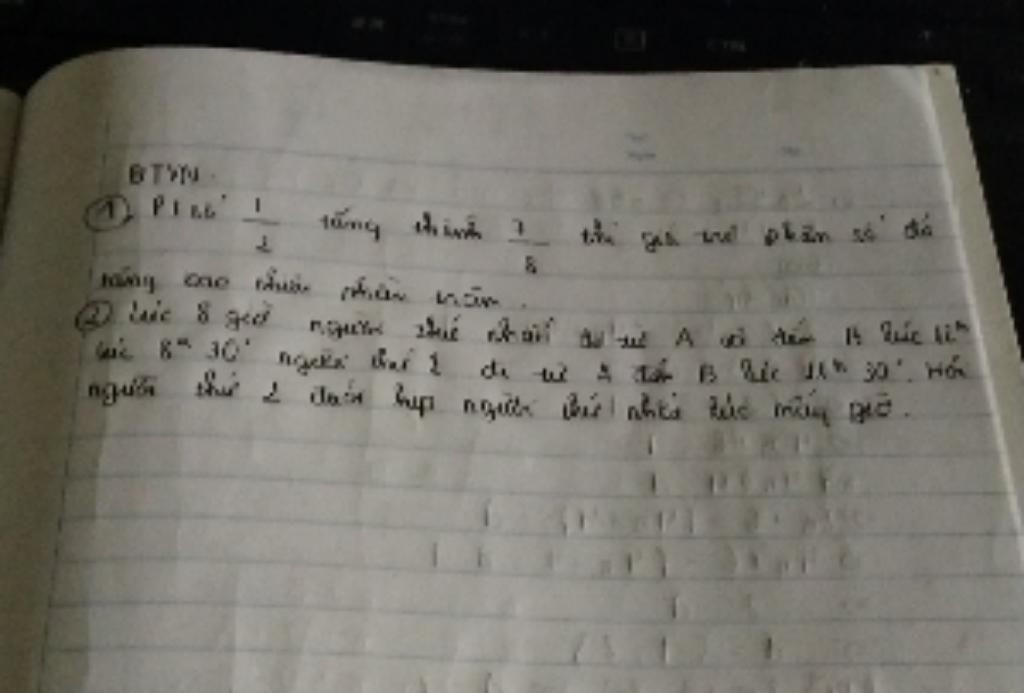 BTVN.
① P/số 1/2 tăng thành 7/8 thì giá trị phân số đó
tăng bao nhiêu phần trăm.
② Lúc 8 giờ người thứ nhất đi từ A và đến B lúc 12h
lúc 8h 30' người thứ 2 đi từ A đến B lúc 11h 30'. Hỏi
người thứ 2 đuổi kịp người thứ nhất lúc mấy giờ.